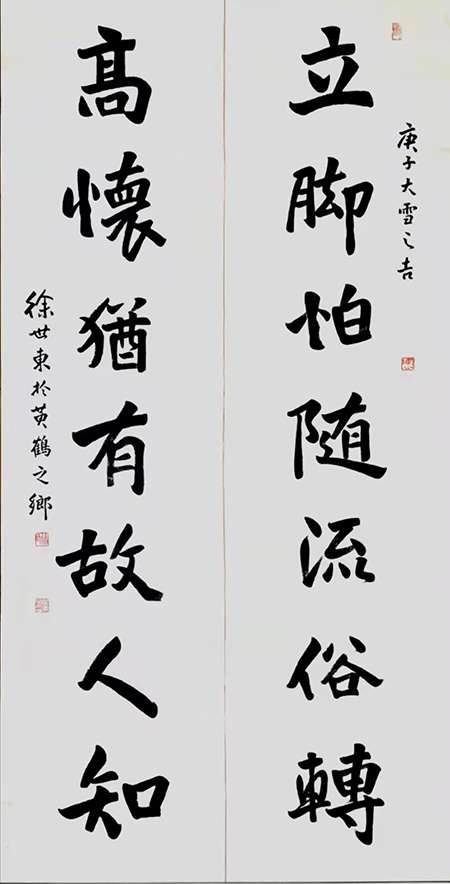 庚子大雪之吉
立脚怕随流俗轉
髙懷猶有故人知
徐世東於黄鶴之鄉